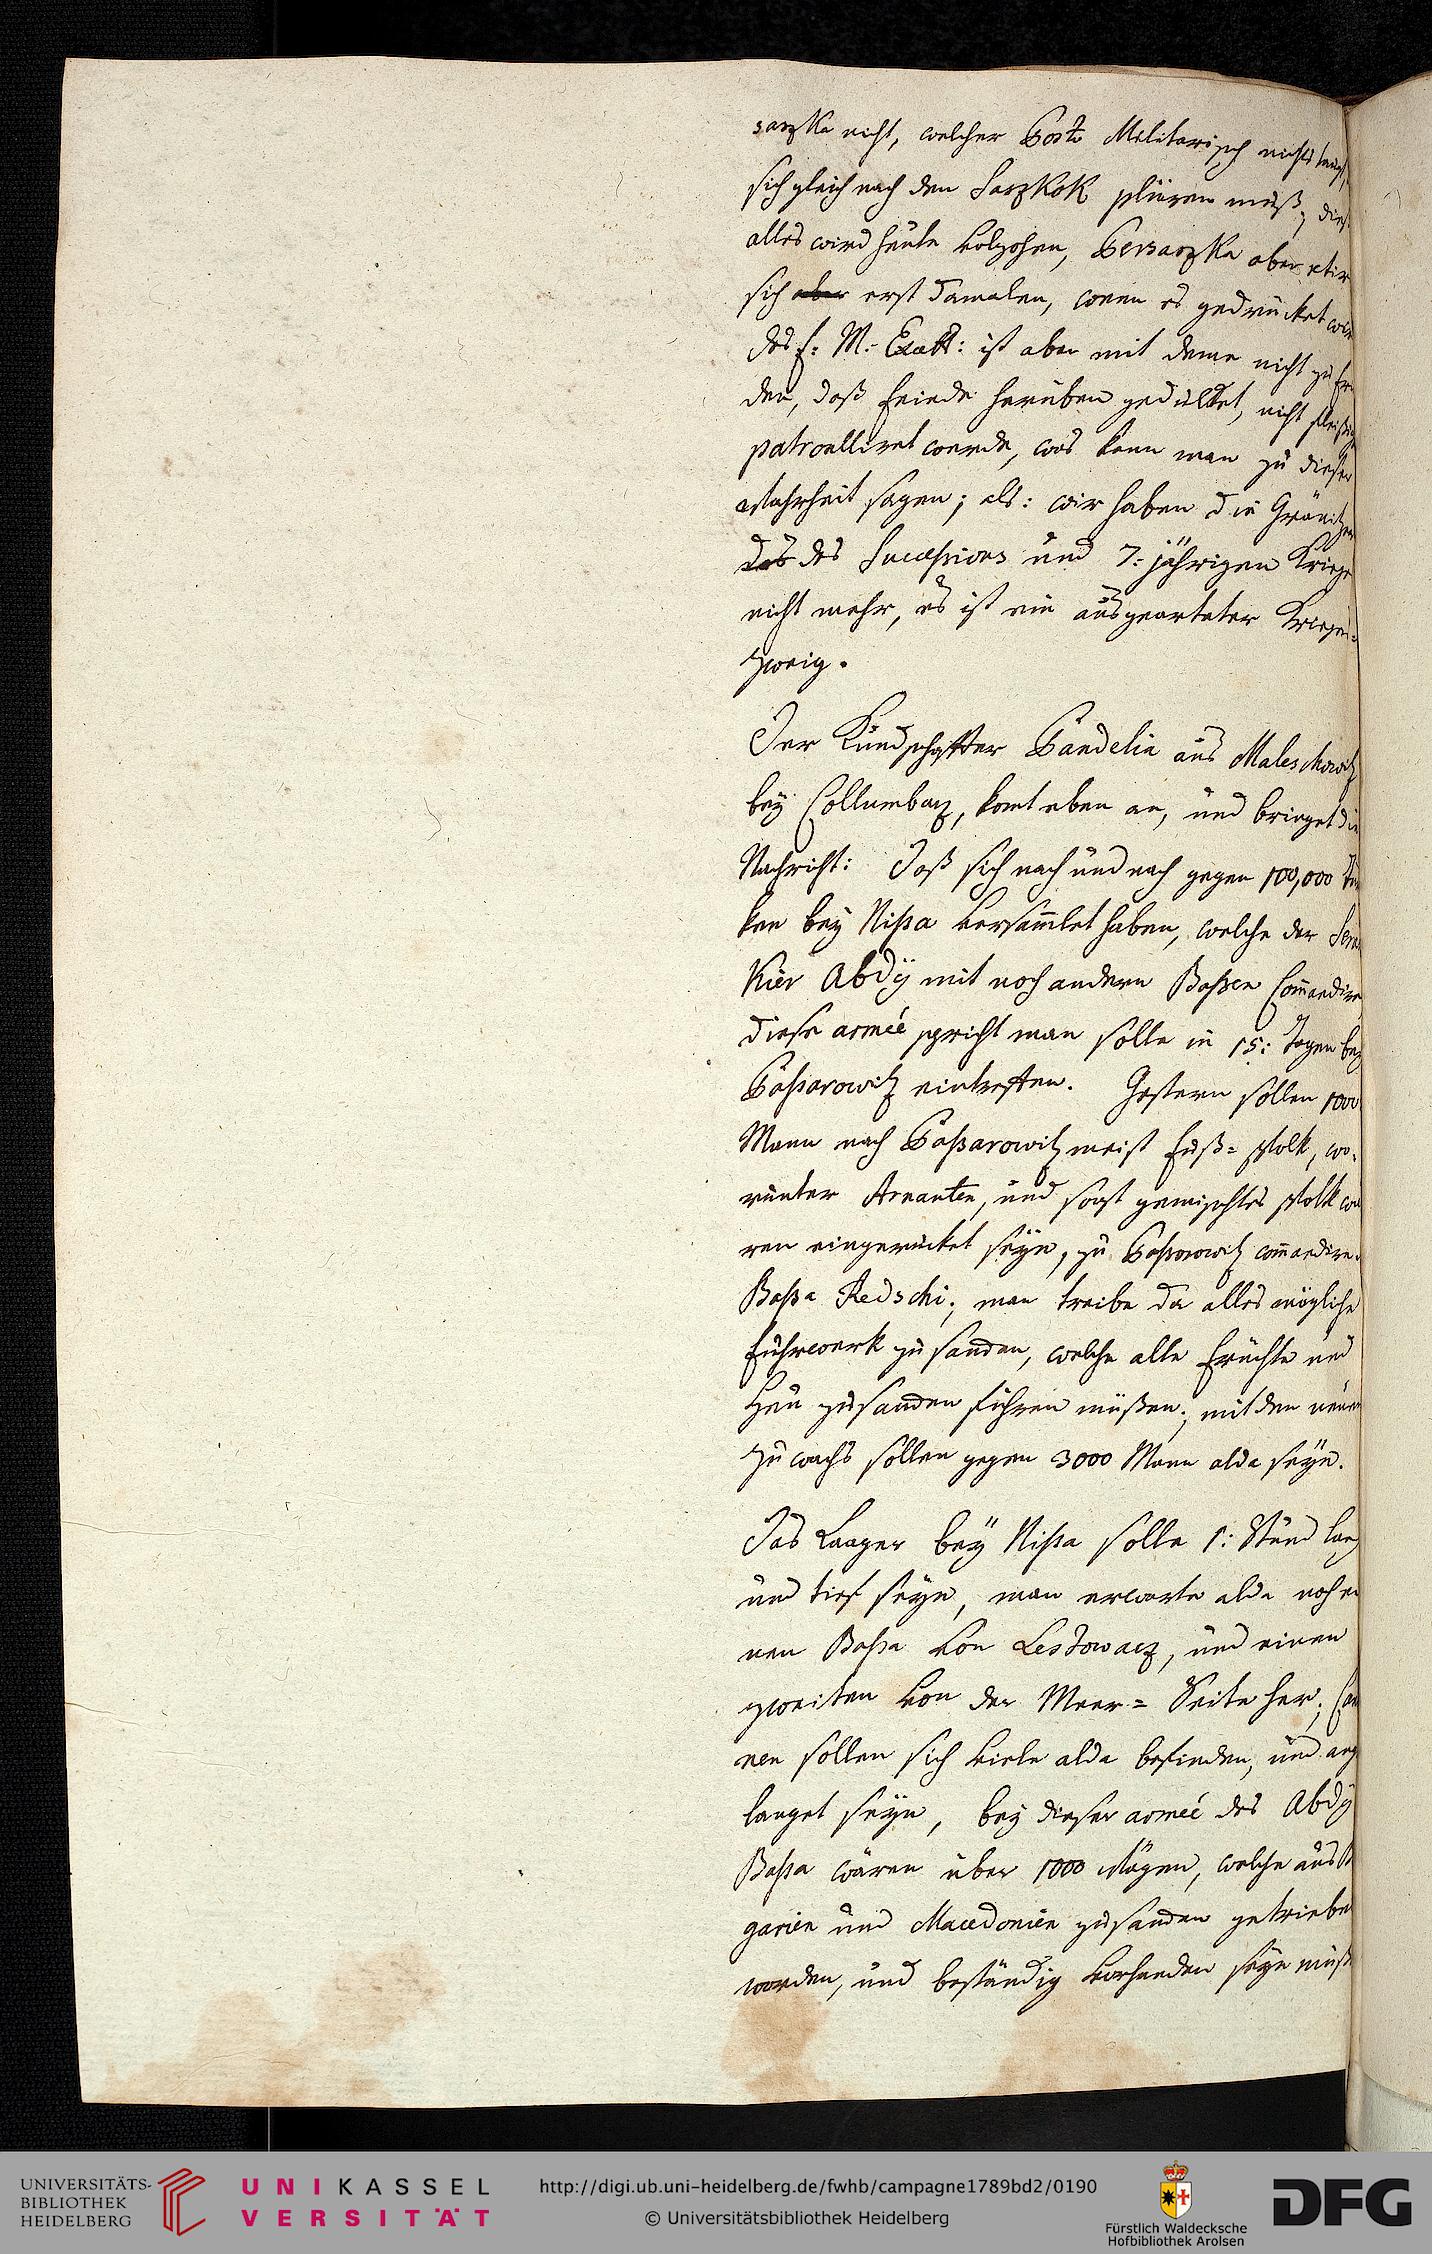 sarzka nicht, welcher Posto Militarisch nichts taugt,
sich gleich nach den Sarzkok pliiren muß, dies
alles wird heute volzohen, Bersarzka aber retir
sich aber erst damalen, wenn es gedrücket wer
des F: M:- Excell: ist aber mit deme nicht zu frie
den, daß Feinde herüben gedultet, nicht fleißig
patroulliret werde, was kann man zu dieser
Wahrheit sagen; als: wir haben die Gränitzen
das des Successions und 7:jährigen Kriegs
nicht mehr, es ist ein ausgearteter Krieges=
zweig.
Der Kundschafter Pandelia aus Maleschowitz
bey Collumbacz, komt eben an, und bringet die
Nachricht: Daß sich nach und nach gegen 100,000 Tür
ken bey Nißa versam̄let haben, welche der Seras
Kier Abdÿ mit noch andern Baßen Com̄andire,
diese armée spricht man solle in 15: Tagen bey
Paßarowitz eintreffen. Gestern sollen 1000
Mann nach Paßarowitz meist Fuß= Volk, wo=
runter Arnauten, und sonst gemischtes Volk wa
ren eingerücket seÿn, zu Paßarowitz com̄andire
Baßa Redschi; man treibe da alles mögliche
Fuhrwerk zusam̄en, welche alle Früchte und
Heu zusam̄en führen müßen; mit den neuen
Zuwachs sollen gegen 3000 Mann alda seÿn.
Das Laager beÿ Nißa solle 1: Stund lang
und tief seÿn, man erwarte alda noch ei
nen Baßa von Lesdowacz, und einen
zweiten von der Meer= Seite her; Can
nen sollen sich viele alda befinden, und ang
langet seÿn, bey dieser armeé des Abdÿ
Baßa wären über 1000 Wägen, welche aus B
garien und Macedonien zusam̄en getrieben
worden, und beständig vorhanden seÿn müß
UNIVERSITÄTS-
BIBLIOTHEK
HEIDELBERG
UNIKASSEL
VERSITÄT
http://digi.ub.uni-heidelberg.de/fwhb/campagne1789bd2/0190
© Universitätsbibliothek Heidelberg
Fürstlich Waldecksche
Hofbibliothek Arolsen
DFG